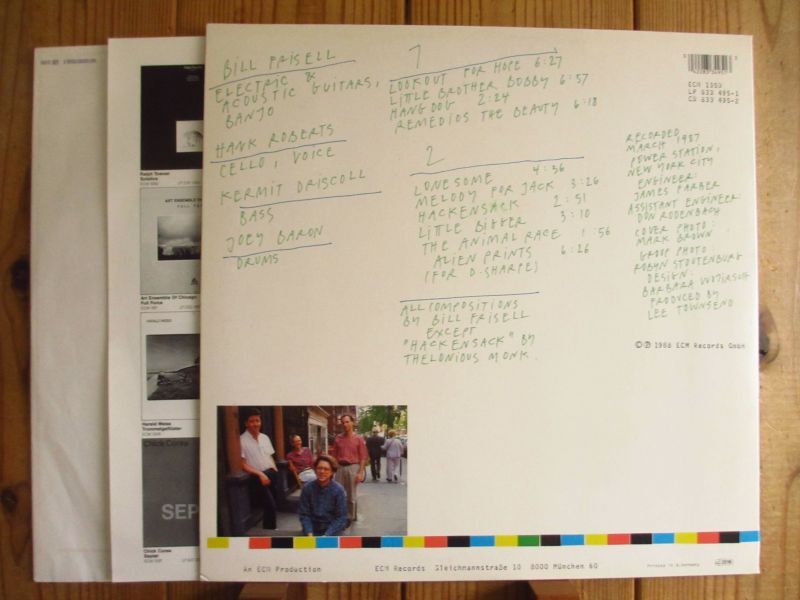 BILL FRISELL
ELECTRIC &
ACOUSTIC GUITARS,
BANJO
HANK ROBERTS
CELLO, VOICE
KERMIT DRISCOLL
BASS
JOEY BARON
DRUMS
1
LOOKOUT FOR HOPE 6:27
LITTLE BROTHER BOBBY 6:57
HANGDOG 2:24
REMEDIOS THE BEAUTY 6:18
2
LONESOME 4:36
MELODY FOR JACK 3:26
HACKENSACK 2:51
LITTLE BIGGER 3:10
THE ANIMAL RACE 1:56
ALIEN PRINTS 6:26
(FOR D. SHARPE)
ALL COMPOSITIONS
BY BILL FRISELL
EXCEPT
"HACKENSACK" BY
THELONIOUS MONK.
ECM 1350
LP 833 495-1
CD 833 495-2
RECORDED
MARCH 1987
POWER STATION,
NEW YORK CITY
ENGINEER:
JAMES FARBER
ASSISTANT ENGINEER:
DON RODENBACH
COVER PHOTO:
MARK BROWN
GROUP PHOTO:
ROBYN STOUTENBURG
DESIGN:
BARBARA WOJIRSCH
PRODUCED BY
LEE TOWNSEND
©℗ 1988 ECM Records GmbH
An ECM Production
ECM Records Gleichmannstraße 10 8000 München 60
Printed in W.Germany
Ralph Towner
Art Ensemble Of Chicago
Full Force
Harald Weiss
Trommelgeflüster
Chick Corea
SEP
Chick Corea
Septet